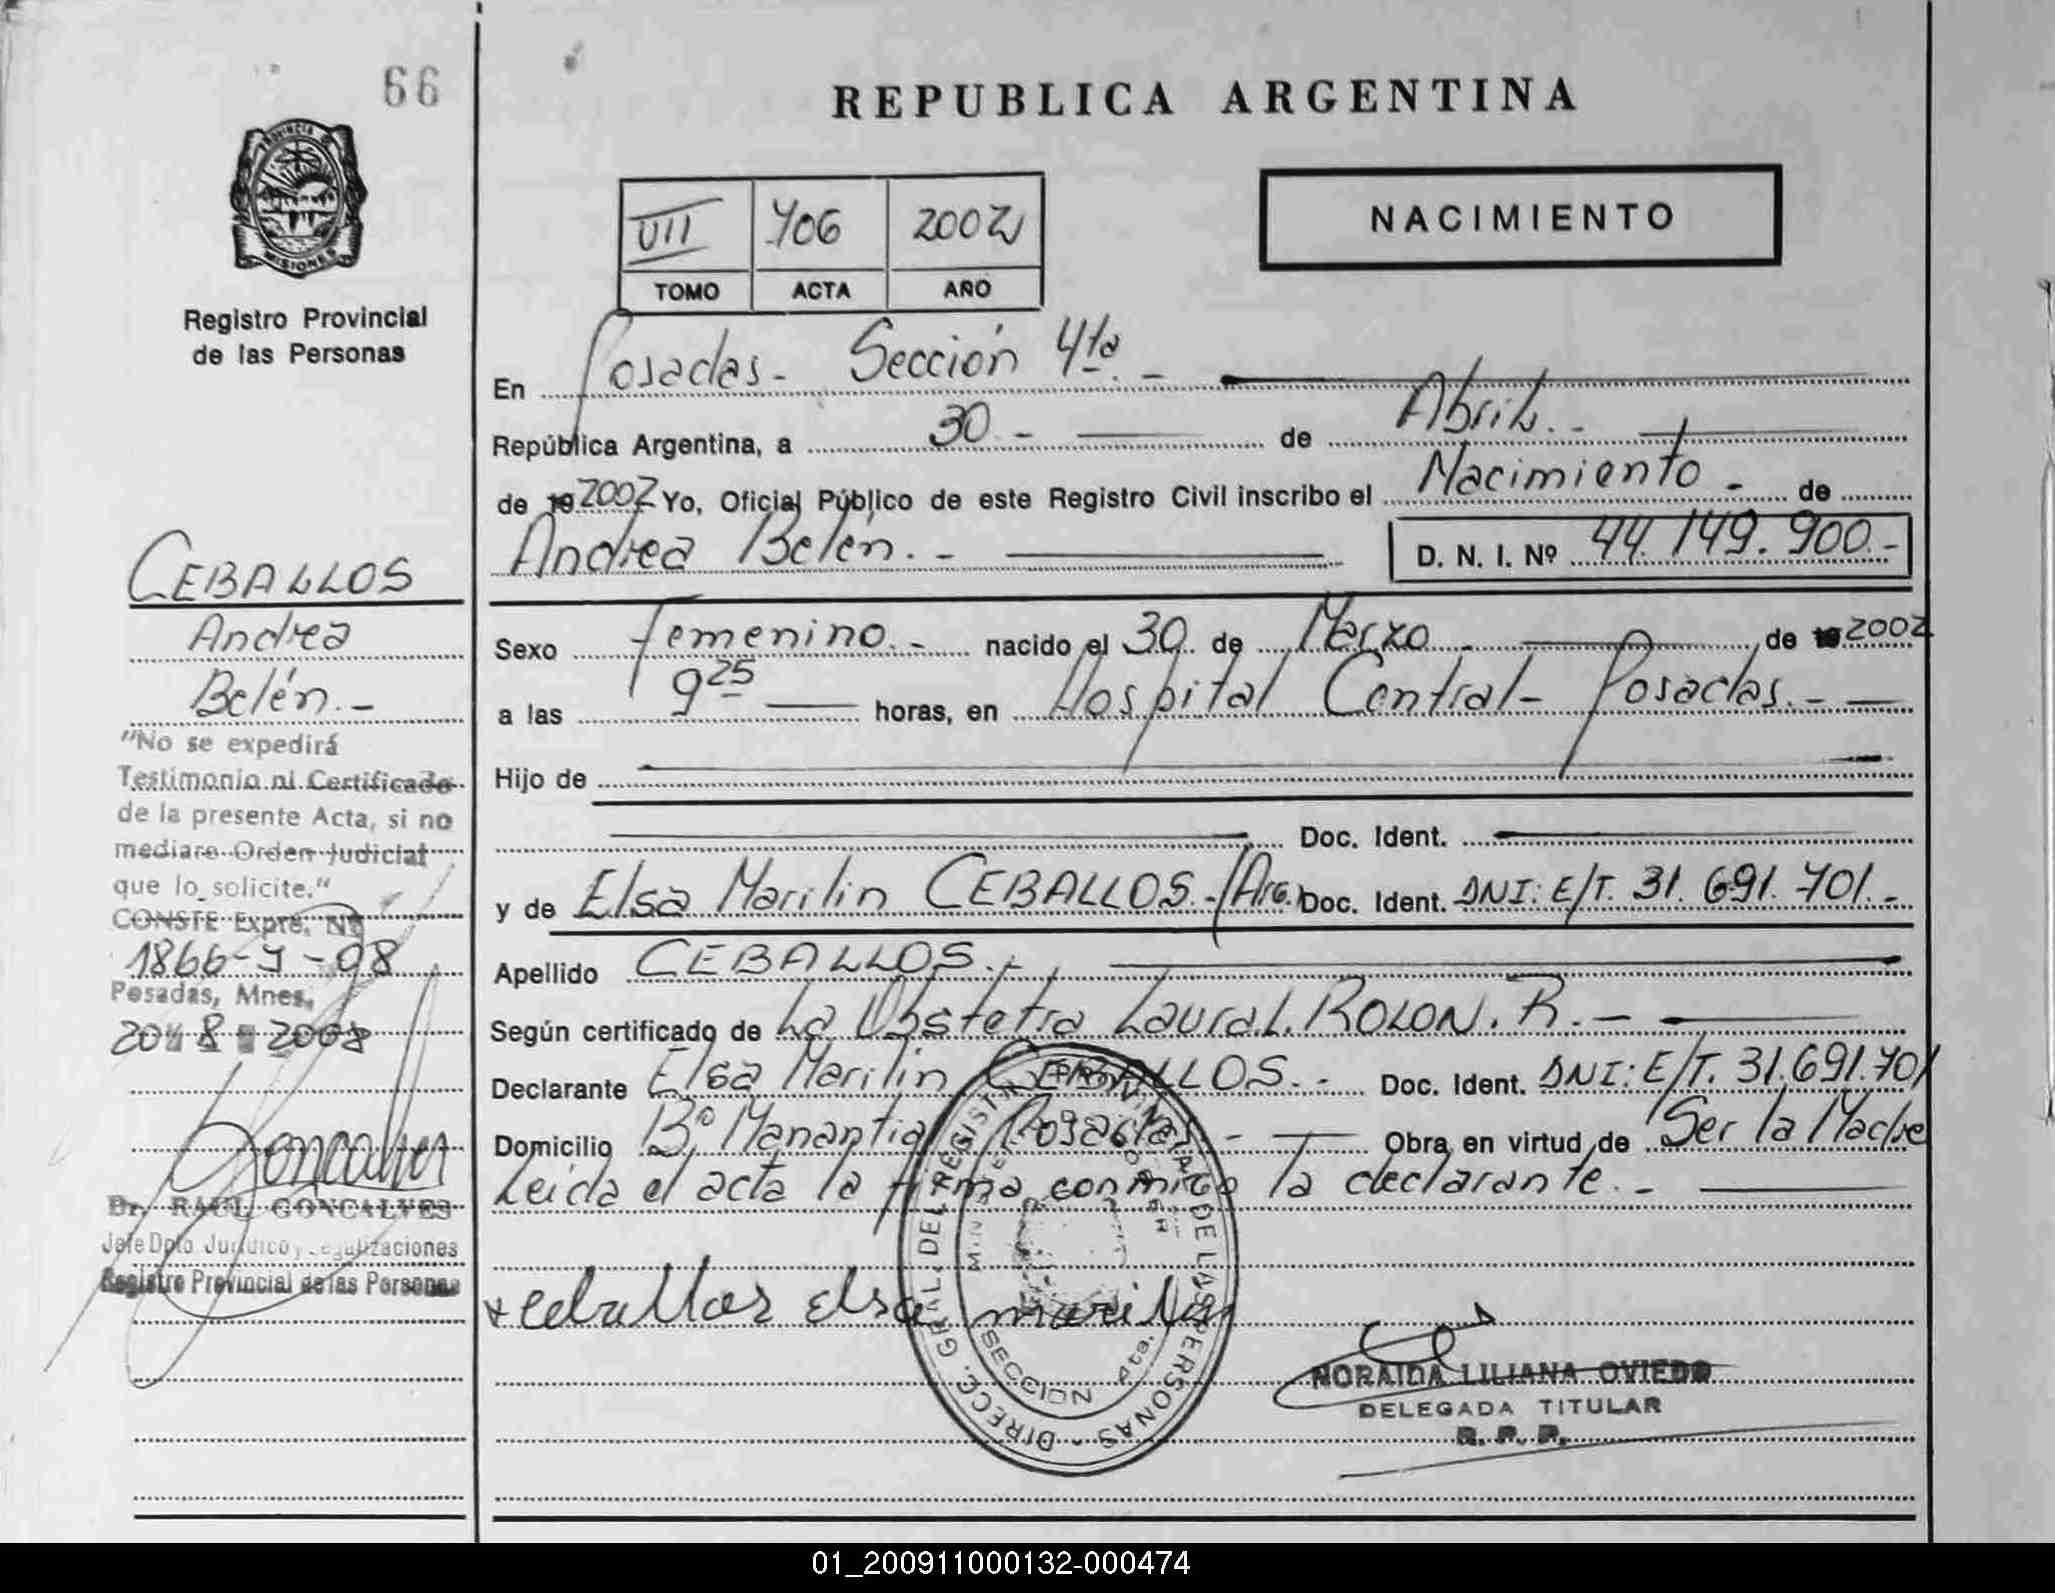 66
REPUBLICA ARGENTINA
PROVINCIA DE
MISIONES
Registro Provincial
de las Personas
VII 706 2002
TOMO ACTA AÑO
NACIMIENTO
En Posadas - Sección 4ta. -
República Argentina, a 30 - de Abril. -
de 19 2002 Yo, Oficial Público de este Registro Civil inscribo el Nacimiento - de
Andrea Belén. - D. N. I. Nº 44.149.900.-
Sexo femenino. - nacido el 30 de Marzo de 19 2002
a las 9 25 horas, en Hospital Central - Posadas. -
Hijo de
Doc. Ident.
y de Elsa Marilin CEBALLOS. - /Arg. Doc. Ident. DNI: E/T. 31.691.701. -
Apellido CEBALLOS. -
Según certificado de La Obstetra Laura L. ROLON. R. -
Declarante Elsa Marilin CEBALLOS. - Doc. Ident. DNI: E/T. 31.691.701
Domicilio Bº Manantial Posadas - Obra en virtud de Ser la Madre
Leída el acta la firma conmigo la declarante. -
+ ceballos elsa marilin
DIRECC. GRAL. DEL REGISTRO PROVINCIAL DE LAS PERSONAS
SECCION 4ta.
NORAIDA LILIANA OVIEDO
DELEGADA TITULAR
R. P. P.
CEBALLOS
Andrea
Belén. -
"No se expedirá
Testimonio ni Certificado
de la presente Acta, si no
mediare Orden Judicial
que lo solicite."
CONSTE Expte. Nº
1866-Y-08
Posadas, Mnes.
20 8 2008
Goncalves
Dr. RAUL GONCALVES
Jefe Dpto. Jurídico y Legalizaciones
Registro Provincial de las Personas
01_200911000132-000474